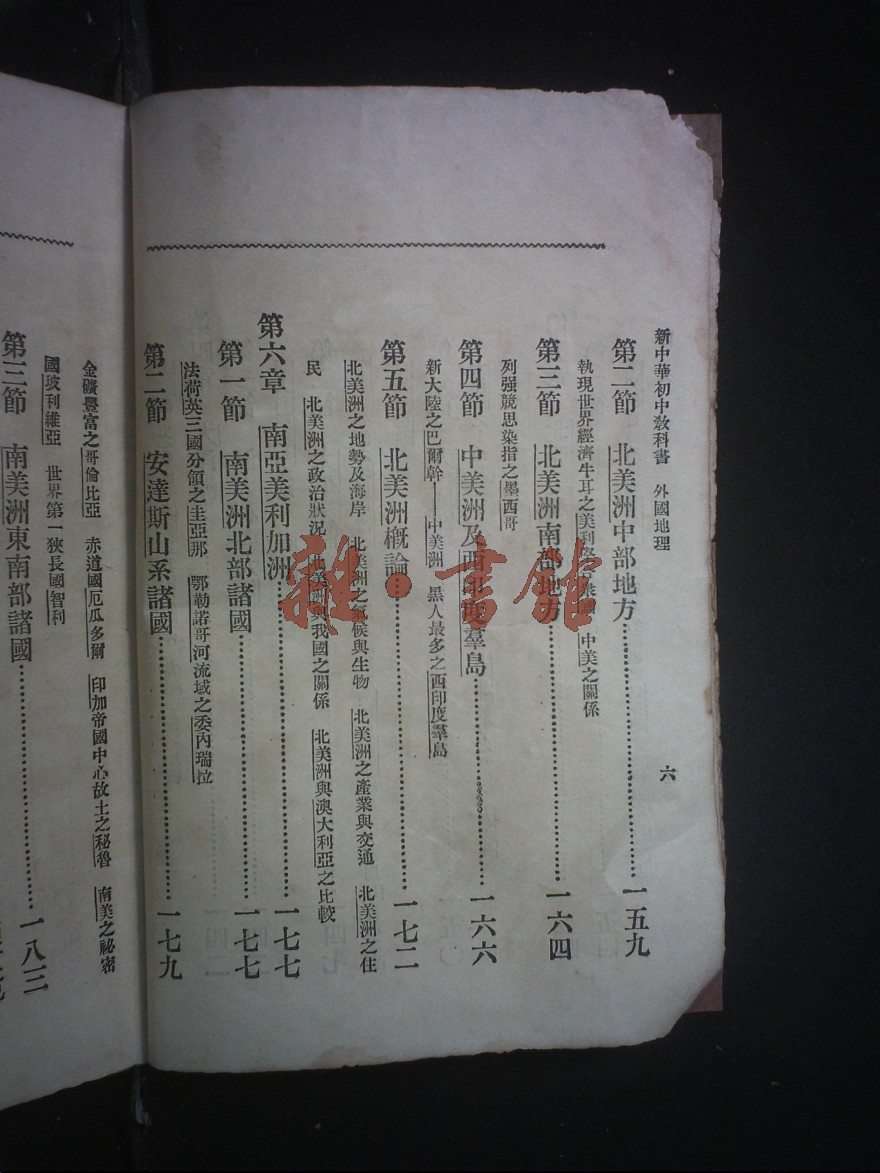 新中華初中教科書　外國地理
六
第二節　北美洲中部地方……一五九
執現世界經濟牛耳之美利堅合衆國　中美之關係
第三節　北美洲南部地方……一六四
列强競思染指之墨西哥
第四節　中美洲及西印度羣島……一六六
新大陸之巴爾幹——中美洲　黑人最多之西印度羣島
第五節　北美洲概論……一七二
北美洲之地勢及海岸　北美洲之氣候與生物　北美洲之產業與交通　北美洲之住
民　北美洲之政治狀況　北美洲與我國之關係　北美洲與澳大利亞之比較
第六章　南亞美利加洲……一七七
第一節　南美洲北部諸國……一七七
法荷英三國分領之圭亞那　鄂勒諾哥河流域之委內瑞拉
第二節　安達斯山系諸國……一七九
金礦豐富之哥倫比亞　赤道國厄瓜多爾　印加帝國中心故土之秘魯　南美之祕密
國玻利維亞　世界第一狹長國智利
第三節　南美洲東南部諸國……一八三
雜·書館